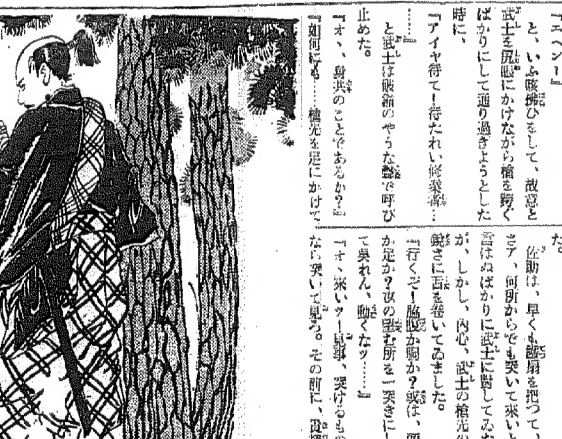 『エヘン！』
と、いふ咳拂ひをして、故意と
武士を尻眼にかけながら槍を跨ぐ
ばかりにして通り過ぎようとした
時に、
『アイヤ待て！待たれい修業者…
……』
と武士は破鐘のやうな聲で呼び
止めた。
『オヽ、身共のことであるか？』
『如何にも……槍先を足にかけて
た。
佐助は、早くも鐵扇を把つて、
さア、何所からでも突いて來い
言はぬばかりに武士に對してゐ
が、しかし、内心、武士の槍先の
鋭さに舌を卷いてゐました。
『行くぞ！脇腹か胸か？或は、
か足か？汝の望む所を一突きに
て呉れん、動くなッ……』
『オヽ來いッ！見事、突けるもの
なら突いて見ろ。その前に、